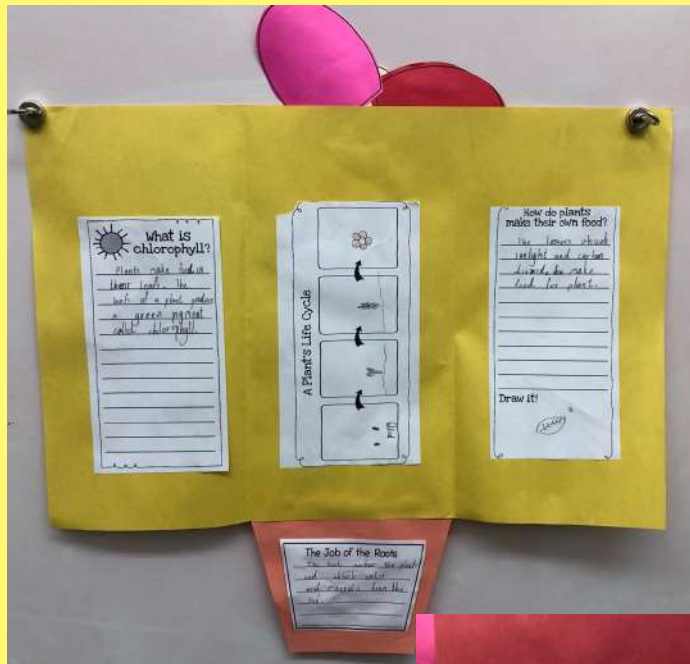 What is
chlorophyll?
Plants make food in
their leafs. The
leafs of a plant
a green pigment
called chlorophyll.
A Plant's Life Cycle
How do plants
make their own food?
The leaves absorb
sunlight and carbon
dioxide to make
food for plants.
Draw it!
The Job of the Roots
The roots anchor the plant
and absorb water
and minerals from the